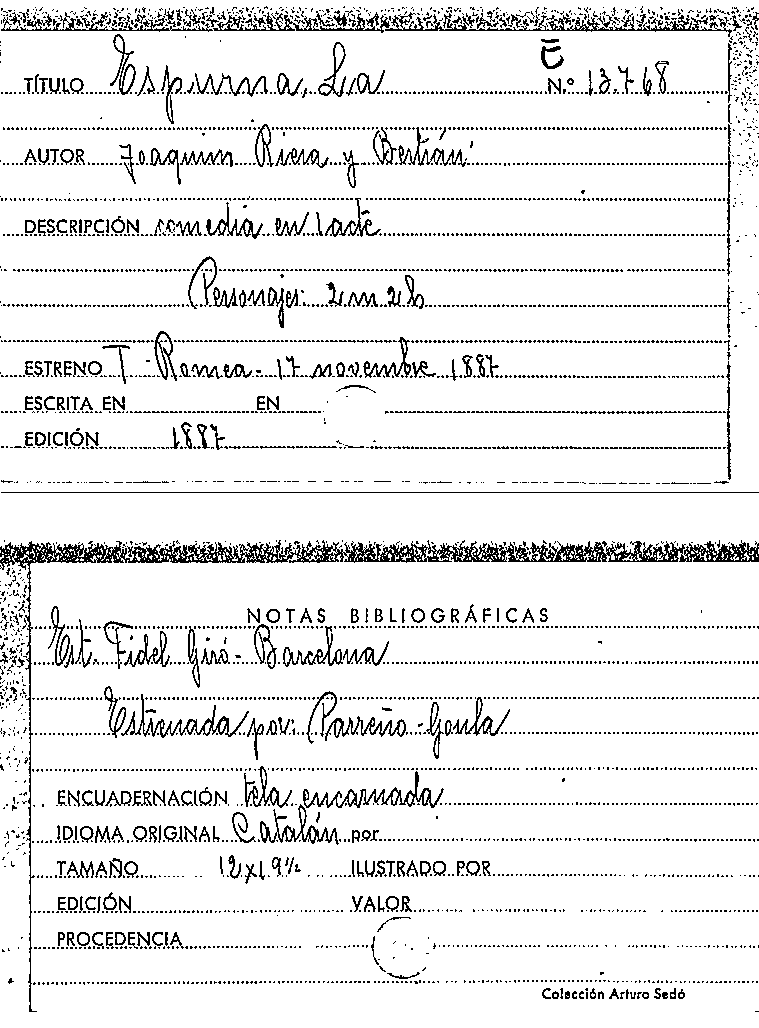 TÍTULO Espurna, La N.º 13.768
AUTOR Joaquim Riera y Bertrán
DESCRIPCIÓN comedia en 1 acte
Personajes: 2m 2h
ESTRENO T - Romea - 17 novembre 1887
ESCRITA EN EN
EDICIÓN 1887
NOTAS BIBLIOGRÁFICAS
Est. Fidel Giró - Barcelona
Estrenada por: Parreño - Goula
ENCUADERNACIÓN tela encarnada
IDIOMA ORIGINAL Catalán por
TAMAÑO 12x19½ ILUSTRADO POR
EDICIÓN VALOR
PROCEDENCIA
Colección Arturo Sedó